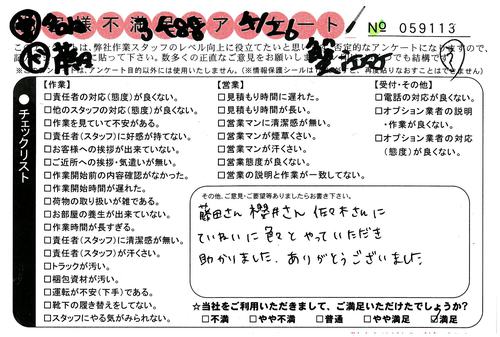 お客様不満足度アンケート
№ 059113
このアンケートは、弊社作業スタッフのレベル向上に役立てたいと思い、否定的なアンケートになりますので、
※アンケートは、アンケート目的以外には使用いたしません。(※情報保護シールは
再度貼りなおすことはできません)
チェックリスト
【作業】
□責任者の対応(態度)が良くない。
□他のスタッフの対応(態度)が良くない。
□作業を見ていて不安がある。
□責任者(スタッフ)に好感が持てない。
□お客様への挨拶が出来ていない。
□ご近所への挨拶・気遣いが無い。
□作業開始前の内容確認がなかった。
□作業開始時間が遅れた。
□荷物の取り扱いが雑である。
□お部屋の養生が出来ていない。
□作業時間が長すぎる。
□責任者(スタッフ)に清潔感が無い。
□責任者(スタッフ)が汗くさい。
□トラックが汚い。
□梱包資材が汚い。
□運転が不安(下手)である。
□靴下の履き替えをしてない。
□スタッフにやる気がみられない。
【営業】
□見積もり時間に遅れた。
□見積もり時間が長い。
□営業マンに清潔感が無い。
□営業マンが煙草くさい。
□営業マンが汗くさい。
□営業態度が良くない。
□営業の説明と作業が一致してない。
【受付・その他】
□電話の対応が良くない。
□オプション業者の説明
・作業が良くない。
□オプション業者の対応
(態度)が良くない。
その他、ご意見・ご要望等ありましたらお書き下さい。
藤田さん 櫻井さん 佐々木さんに
ていねいに色々とやっていただき
助かりました。ありがとうございました
☆当社をご利用いただきまして、ご満足いただけたでしょうか?
□不満 □やや不満 □普通 □やや満足 ☑満足